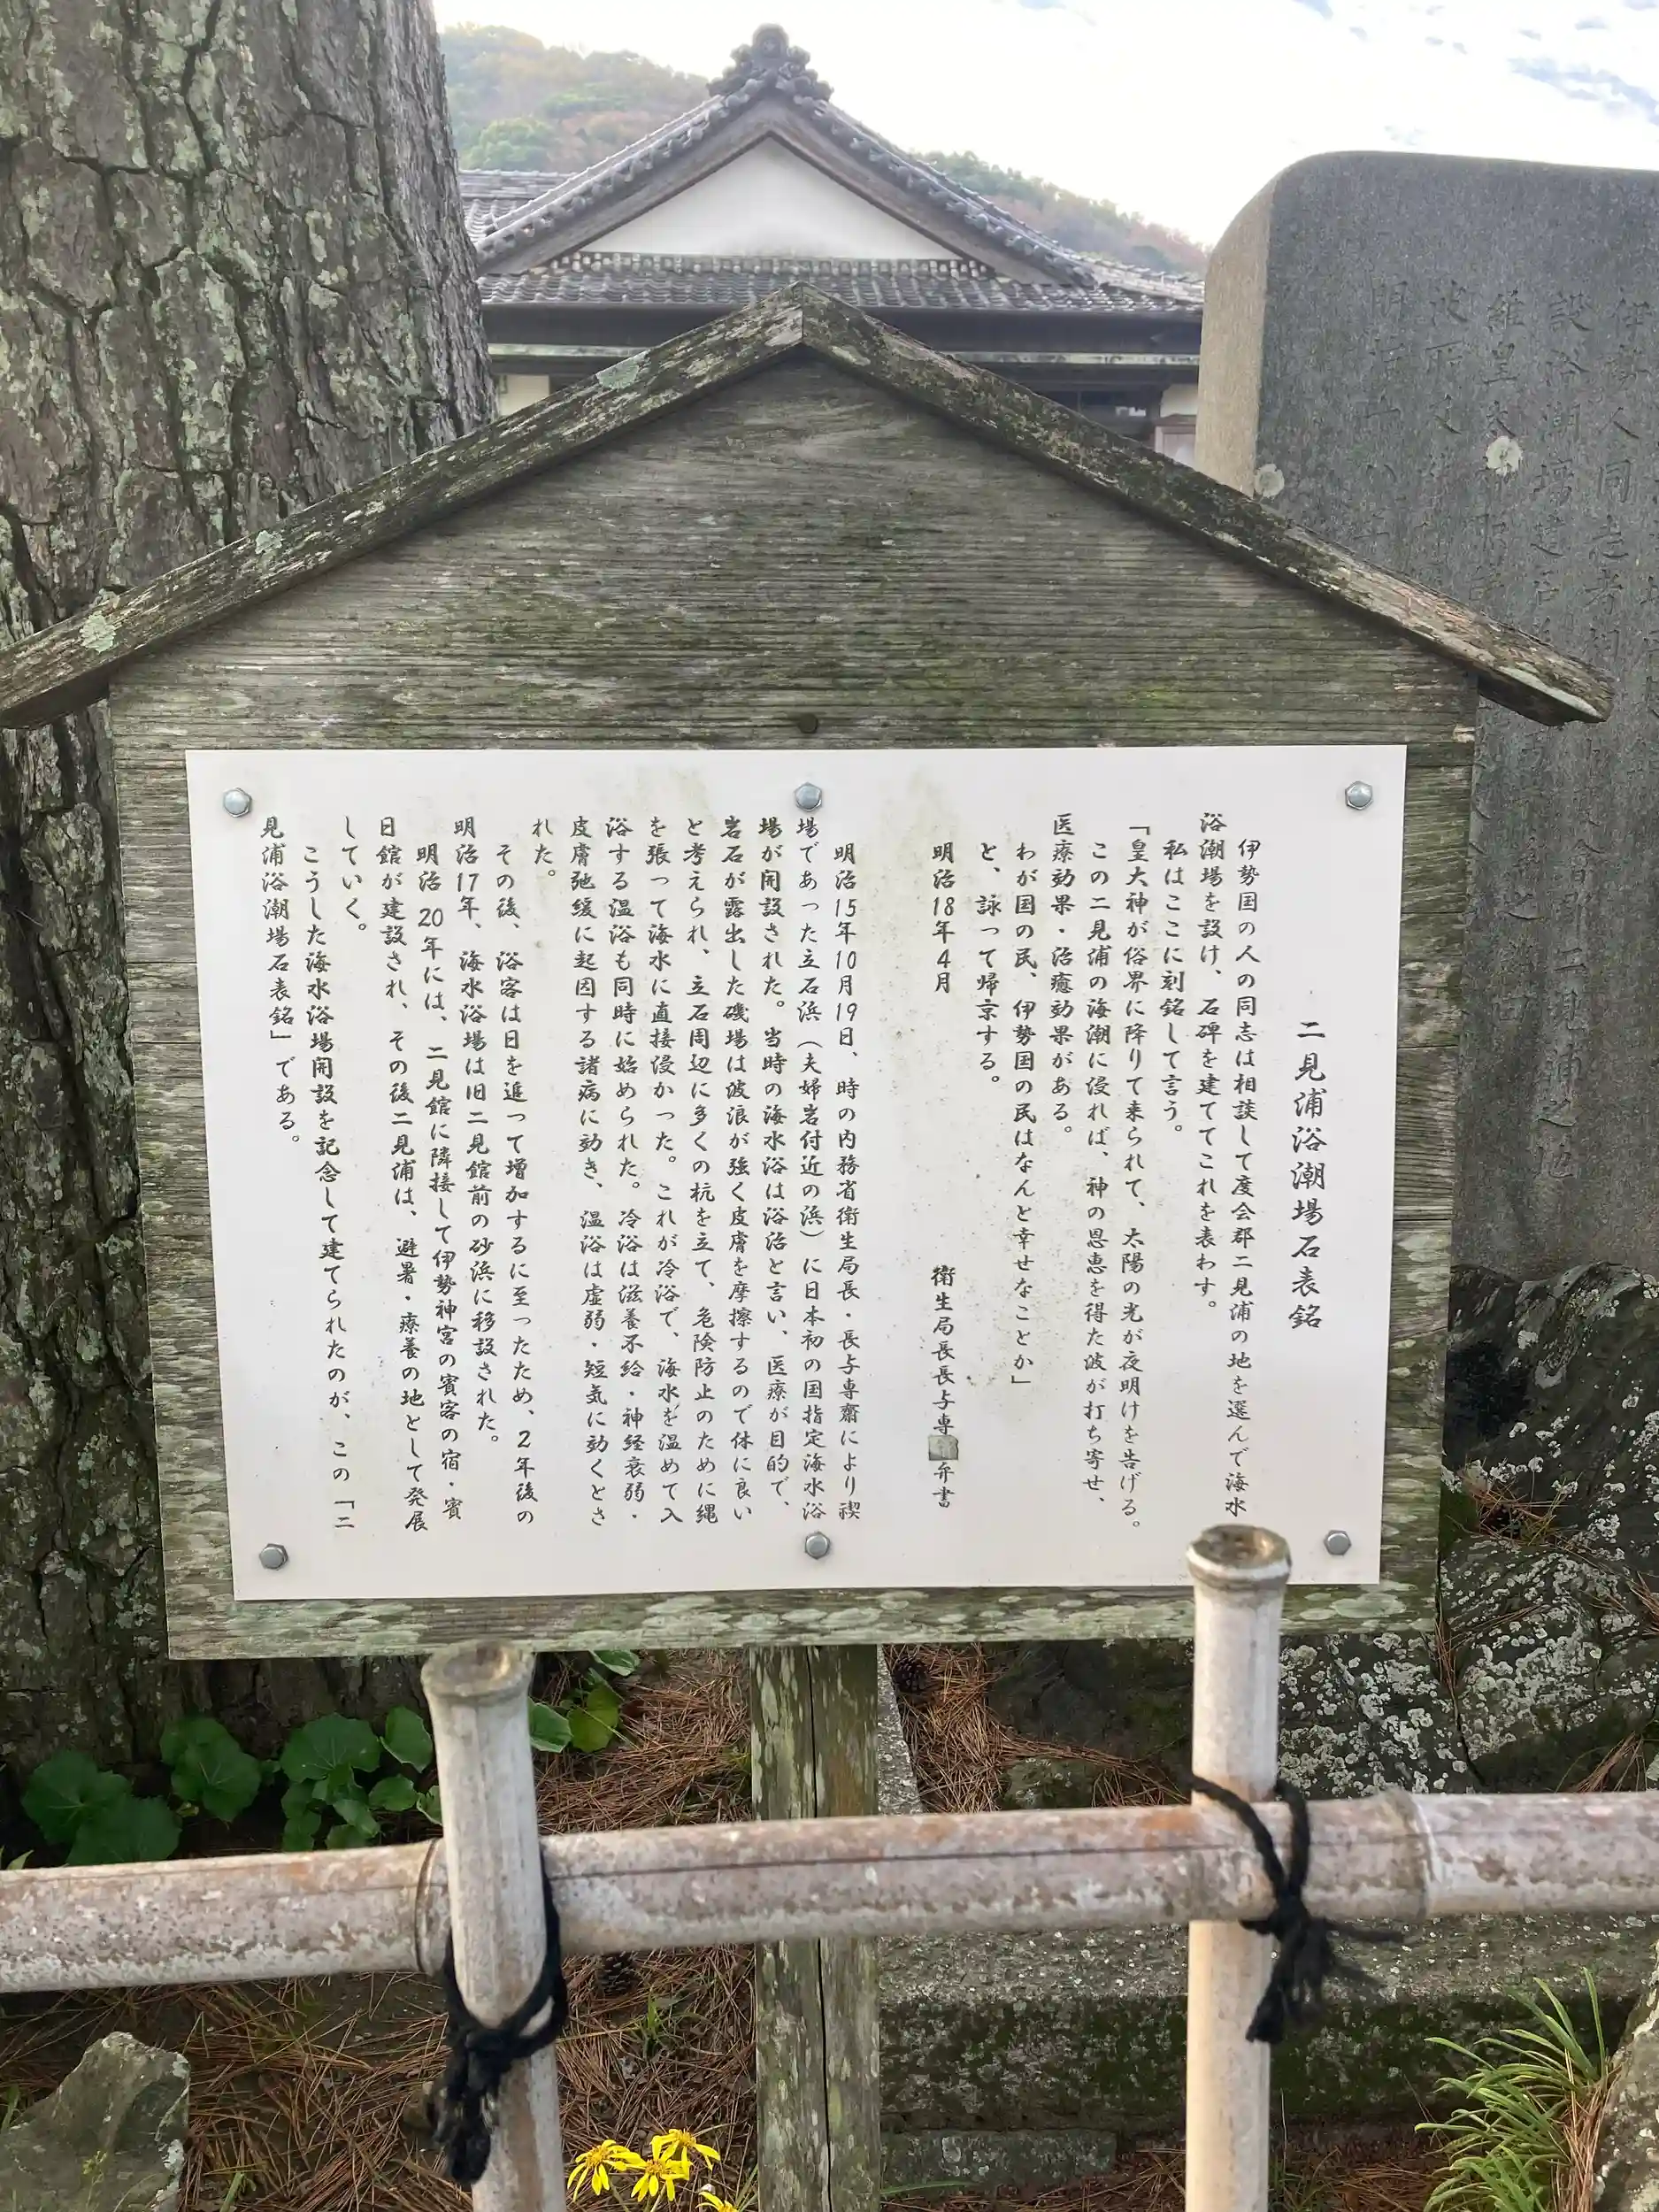 二見浦浴潮場石表銘
伊勢国の人の同志は相談して度会郡二見浦の地を選んで海水
浴潮場を設け、石碑を建ててこれを表わす。
私はここに刻銘して言う。
「皇大神が俗界に降りて来られて、太陽の光が夜明けを告げる。
この二見浦の海潮に浸れば、神の恩恵を得た波が打ち寄せ、
医療効果・治癒効果がある。
わが国の民、伊勢国の民はなんと幸せなことか」
と、詠って帰京する。
明治18年4月
衛生局長長与専 弁書
明治15年10月19日、時の内務省衛生局長・長与専齋により禊
場であった立石浜（夫婦岩付近の浜）に日本初の国指定海水浴
場が開設された。当時の海水浴は浴治と言い、医療が目的で、
岩石が露出した磯場は波浪が強く皮膚を摩擦するので体に良い
と考えられ、立石周辺に多くの杭を立て、危険防止のために縄
を張って海水に直接浸かった。これが冷浴で、海水を温めて入
浴する温浴も同時に始められた。冷浴は滋養不給・神経衰弱・
皮膚弛緩に起因する諸病に効き、温浴は虚弱・短気に効くとさ
れた。
その後、浴客は日を追って増加するに至ったため、2年後の
明治17年、海水浴場は旧二見館前の砂浜に移設された。
明治20年には、二見館に隣接して伊勢神宮の賓客の宿・賓
日館が建設され、その後二見浦は、避暑・療養の地として発展
していく。
こうした海水浴場開設を記念して建てられたのが、この「二
見浦浴潮場石表銘」である。